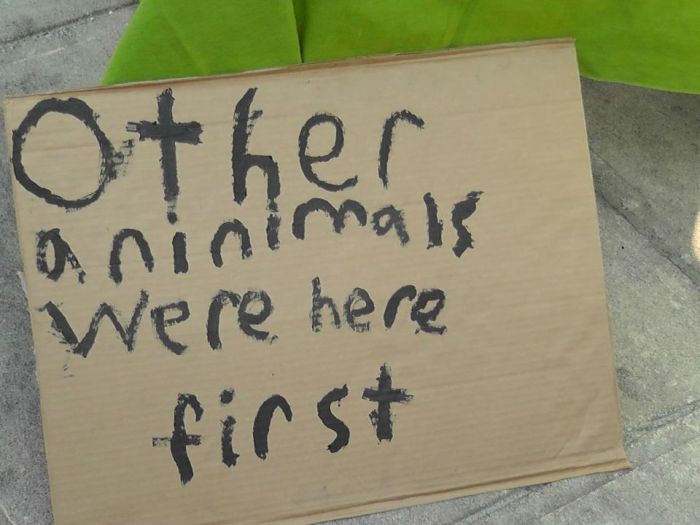 Other
aninimals
were here
first